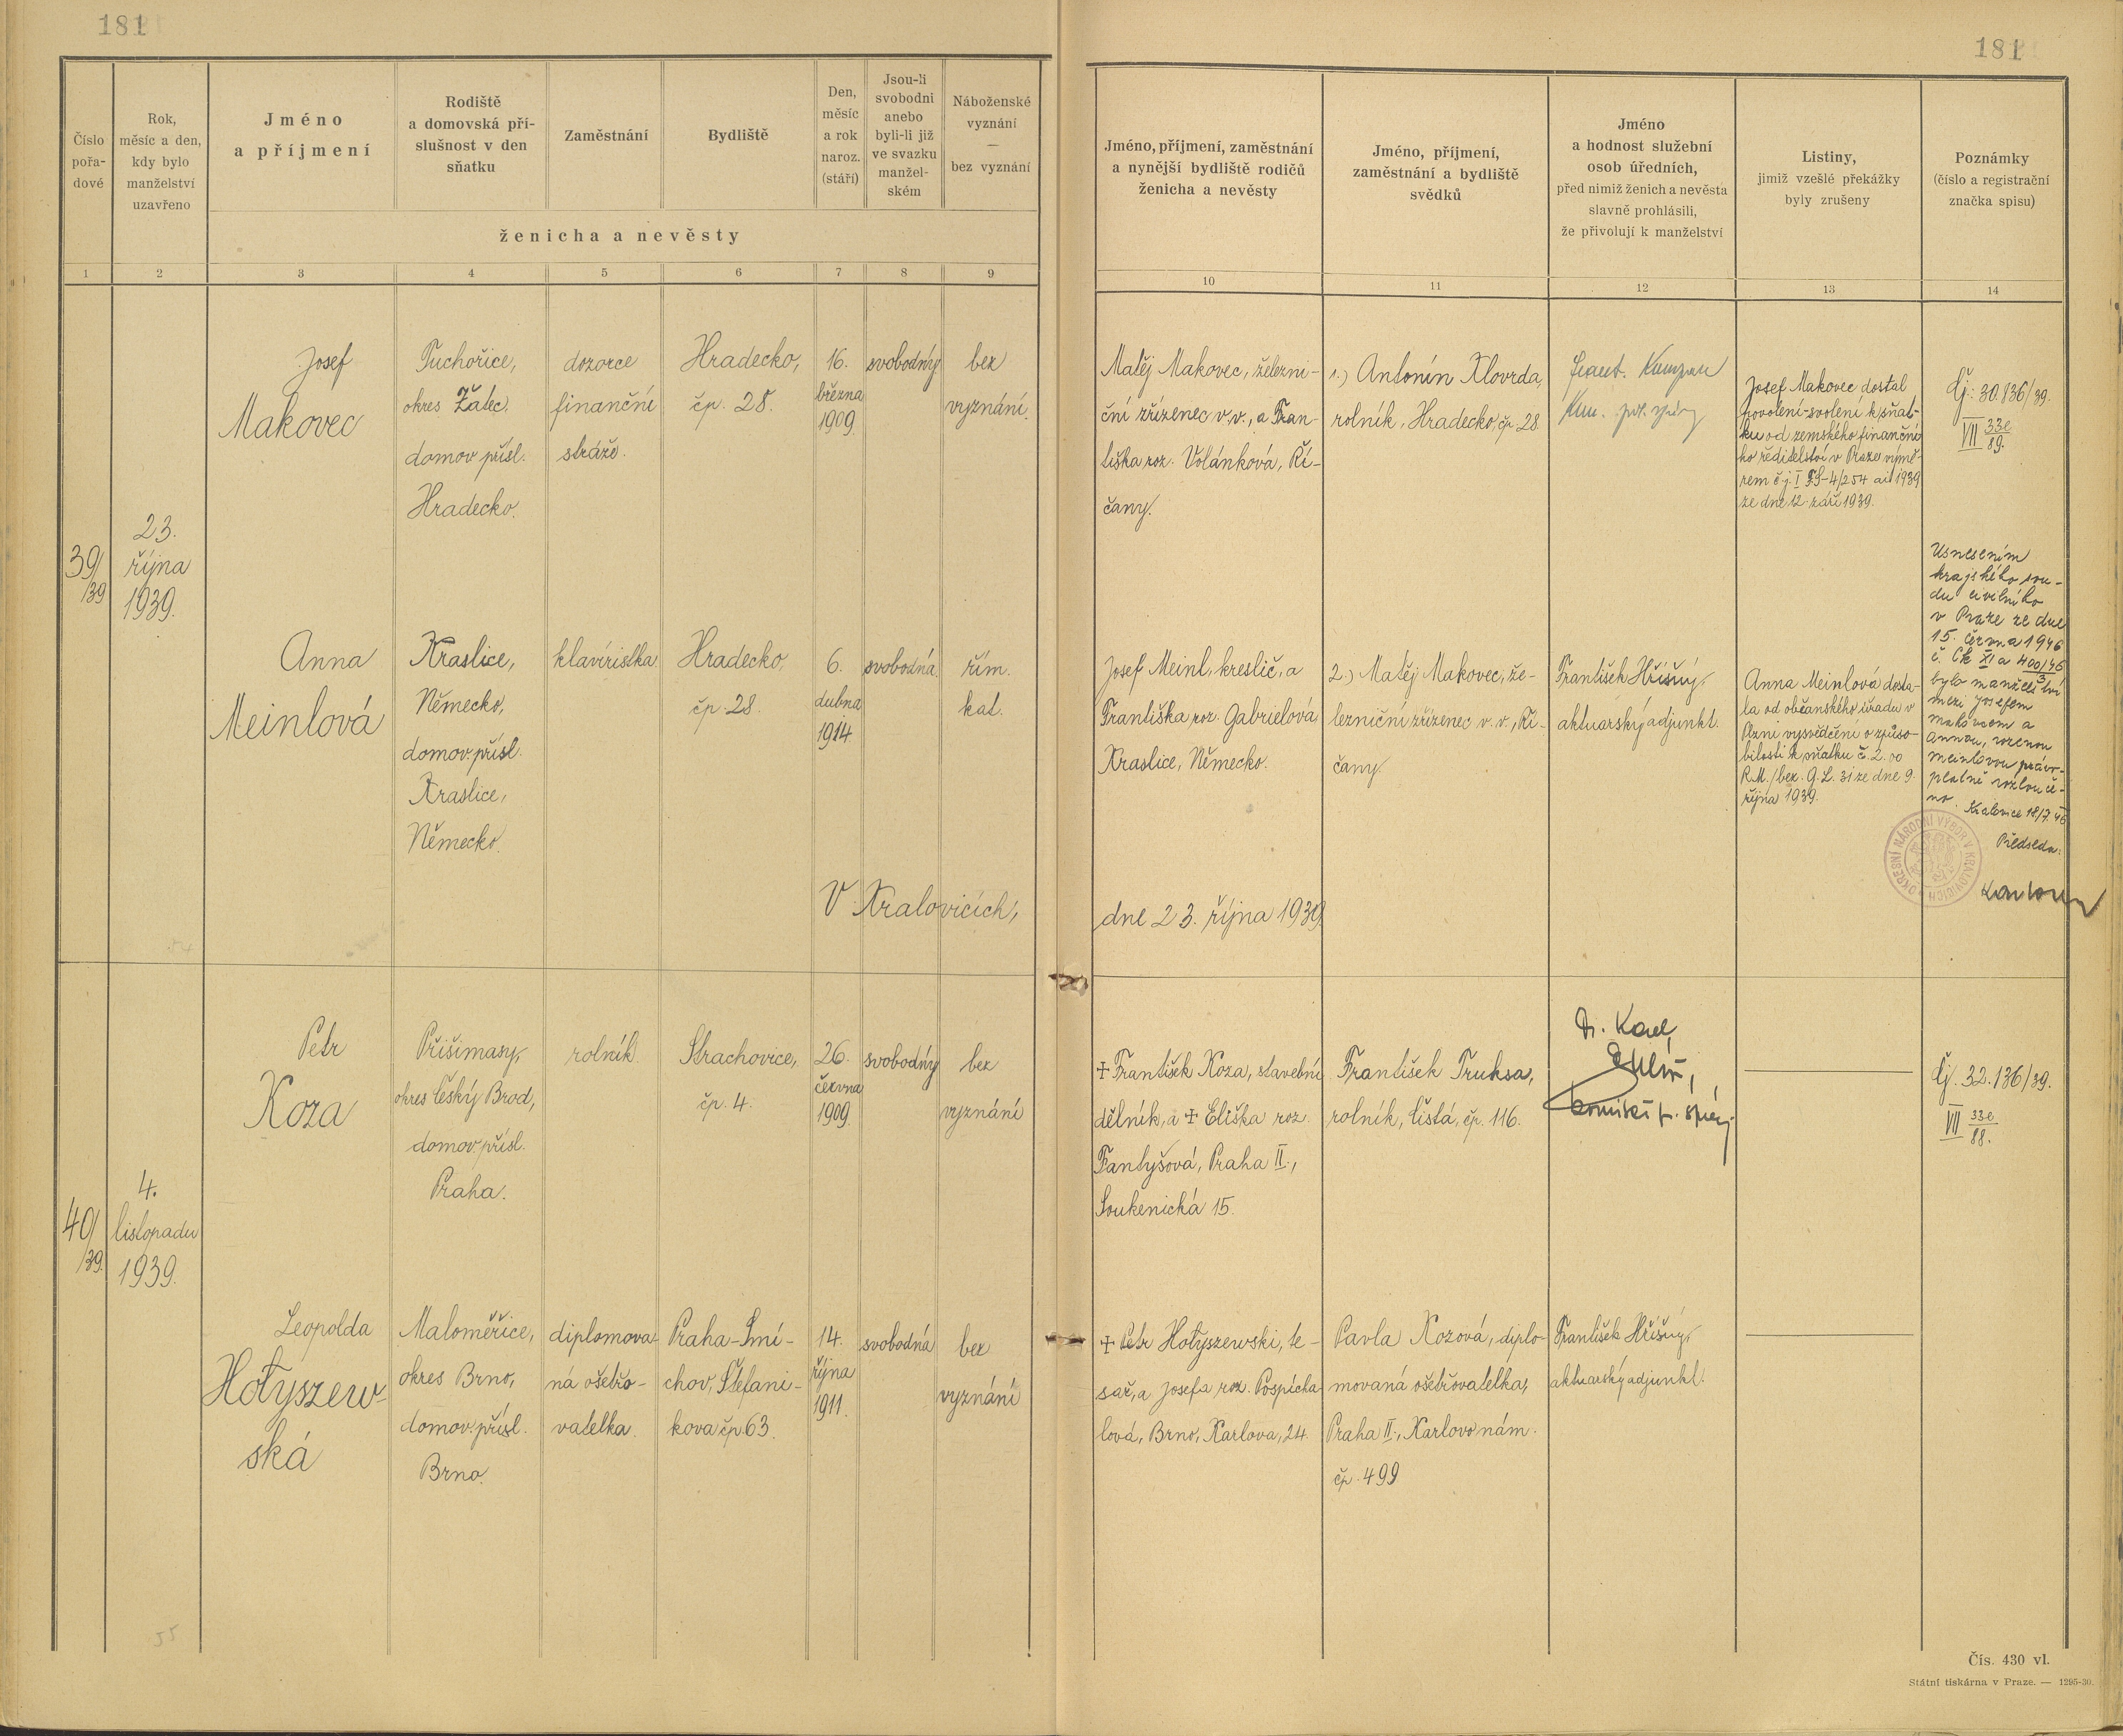 181
181
Číslo
pořa-
dové
Rok,
měsíc a den,
kdy bylo
manželství
uzavřeno
Jméno
a příjmení
Rodiště
a domovská pří-
slušnost v den
sňatku
Zaměstnání
Bydliště
Den,
měsíc
a rok
naroz.
(stáří)
Jsou-li
svobodni
anebo
byli-li již
ve svazku
manžel-
ském
Náboženské
vyznání
—
bez vyznání
ženicha a nevěsty
Jméno, příjmení, zaměstnání
a nynější bydliště rodičů
ženicha a nevěsty
Jméno, příjmení,
zaměstnání a bydliště
svědků
Jméno
a hodnost služební
osob úředních,
před nimiž ženich a nevěsta
slavně prohlásili,
že přivolují k manželství
Listiny,
jimiž vzešlé překážky
byly zrušeny
Poznámky
(číslo a registrační
značka spisu)
1 2 3 4 5 6 7 8 9
10 11 12 13 14
39/
/39
23.
října
1939.
Josef
Makovec
Tuchořice,
okres Žatec.
domov. přísl.
Hradecko.
dozorce
finanční
stráže.
Hradecko,
čp. 28.
16.
března
1909.
svobodný
bez
vyznání.
Matěj Makovec, železni-
ční zřízenec v.v., a Fran-
tiška roz. Volánková, Ří-
čany.
1.) Antonín Klovrda,
rolník, Hradecko, čp. 28.
Frant.
Josef Makovec dostal
povolení-svolení k sňat-
ku od zemského finanční
ho ředitelství v Praze výmě-
rem č.j. I FS-4/254 ai 1939
ze dne 12. září 1939.
Čj.: 30.136/39.
VII 33e
89.
Anna
Meinlová
Kraslice,
Německo,
domov. přísl.
Kraslice,
Německo.
klavíristka
Hradecko,
čp. 28.
6.
dubna
1914.
svobodná.
řím.
kat.
Josef Meinl, kreslič, a
Františka roz. Gabrielová
Kraslice, Německo.
2.) Matěj Makovec, že-
lezniční zřízenec v. v., Ří-
čany.
František Hříšný,
aktuarský adjunkt.
Anna Meinlová dosta-
la od občanského úřadu v
Plzni vysvědčení o způso-
bilosti k sňatku č. 2.00
R.M./bez. G.L. 31 ze dne 9.
října 1939.
Usnesením
krajského sou-
du civilního
v Praze ze dne
15. června 1946
č. Ck XI a 400/46
3
bylo manželství
mezi Josefem
Makovcem a
Annou, rozenou
Meinlovou právo-
platně rozlouče-
no. Kralovice 18/7. 46
Předseda:
OKRESNÍ NÁRODNÍ VÝBOR V KRALOVICÍCH
V Kralovicích,
dne 23. října 1939.
40/
/39.
4.
listopadu
1939.
Petr
Koza
Přišimasy,
okres Český Brod,
domov. přísl.
Praha.
rolník.
Strachovice,
čp. 4.
26.
června
1909.
svobodný
bez
vyznání
✝ František Koza, stavební
dělník, a ✝ Eliška roz.
Fantyšová, Praha II.,
Soukenická 15.
František Truksa,
rolník, Čistá, čp. 116.
Dr. Karel
Čj. 32.136/39.
VII 33e
88.
Leopolda
Hołyszew-
ská
Maloměřice,
okres Brno,
domov. přísl.
Brno.
diplomova-
ná ošetřo-
vatelka.
Praha-Smí-
chov, Štefani-
kova čp. 63.
14.
října
1911.
svobodná
bez
vyznání
✝ Petr Hołyszewski, te-
sař, a Josefa roz. Pospícha
lová, Brno, Karlova, 24.
Pavla Kozová, diplo-
movaná ošetřovatelka,
Praha II., Karlovo nám.
čp. 499
František Hříšný,
aktuarský adjunkt.
55
Čís. 430 vl.
Státní tiskárna v Praze. — 1295-30.